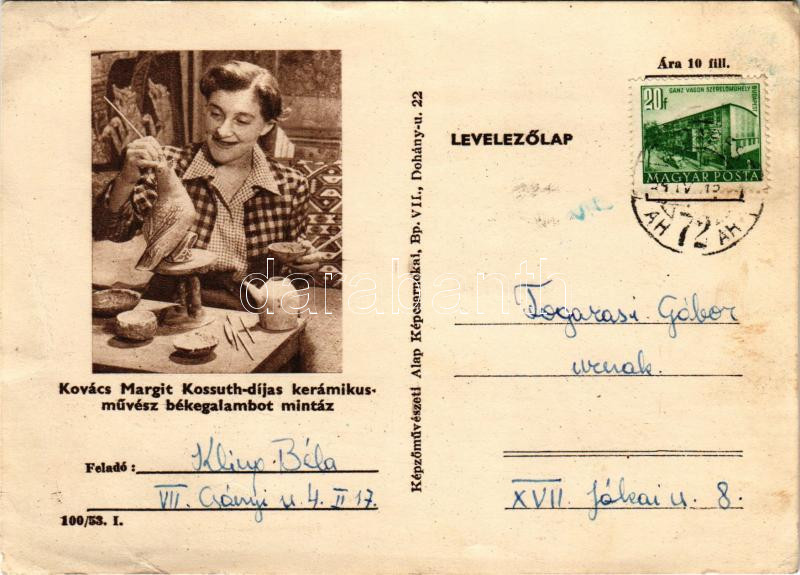 Kovács Margit Kossuth-díjas kerámikus-
művész békegalambot mintáz
Feladó: Kling Béla
VII. Csányi u. 4. II 17.
100/53. I.
Képzőművészeti Alap Képcsarnokai, Bp. VII., Dohány-u. 22
Ára 10 fill.
20f
GANZ VAGON SZERELŐMŰHELY
BUDAPEST
MAGYAR POSTA
72
LEVELEZŐLAP
Fogarasi Gábor
urnak.
XVII. Jókai u. 8.
darabanth